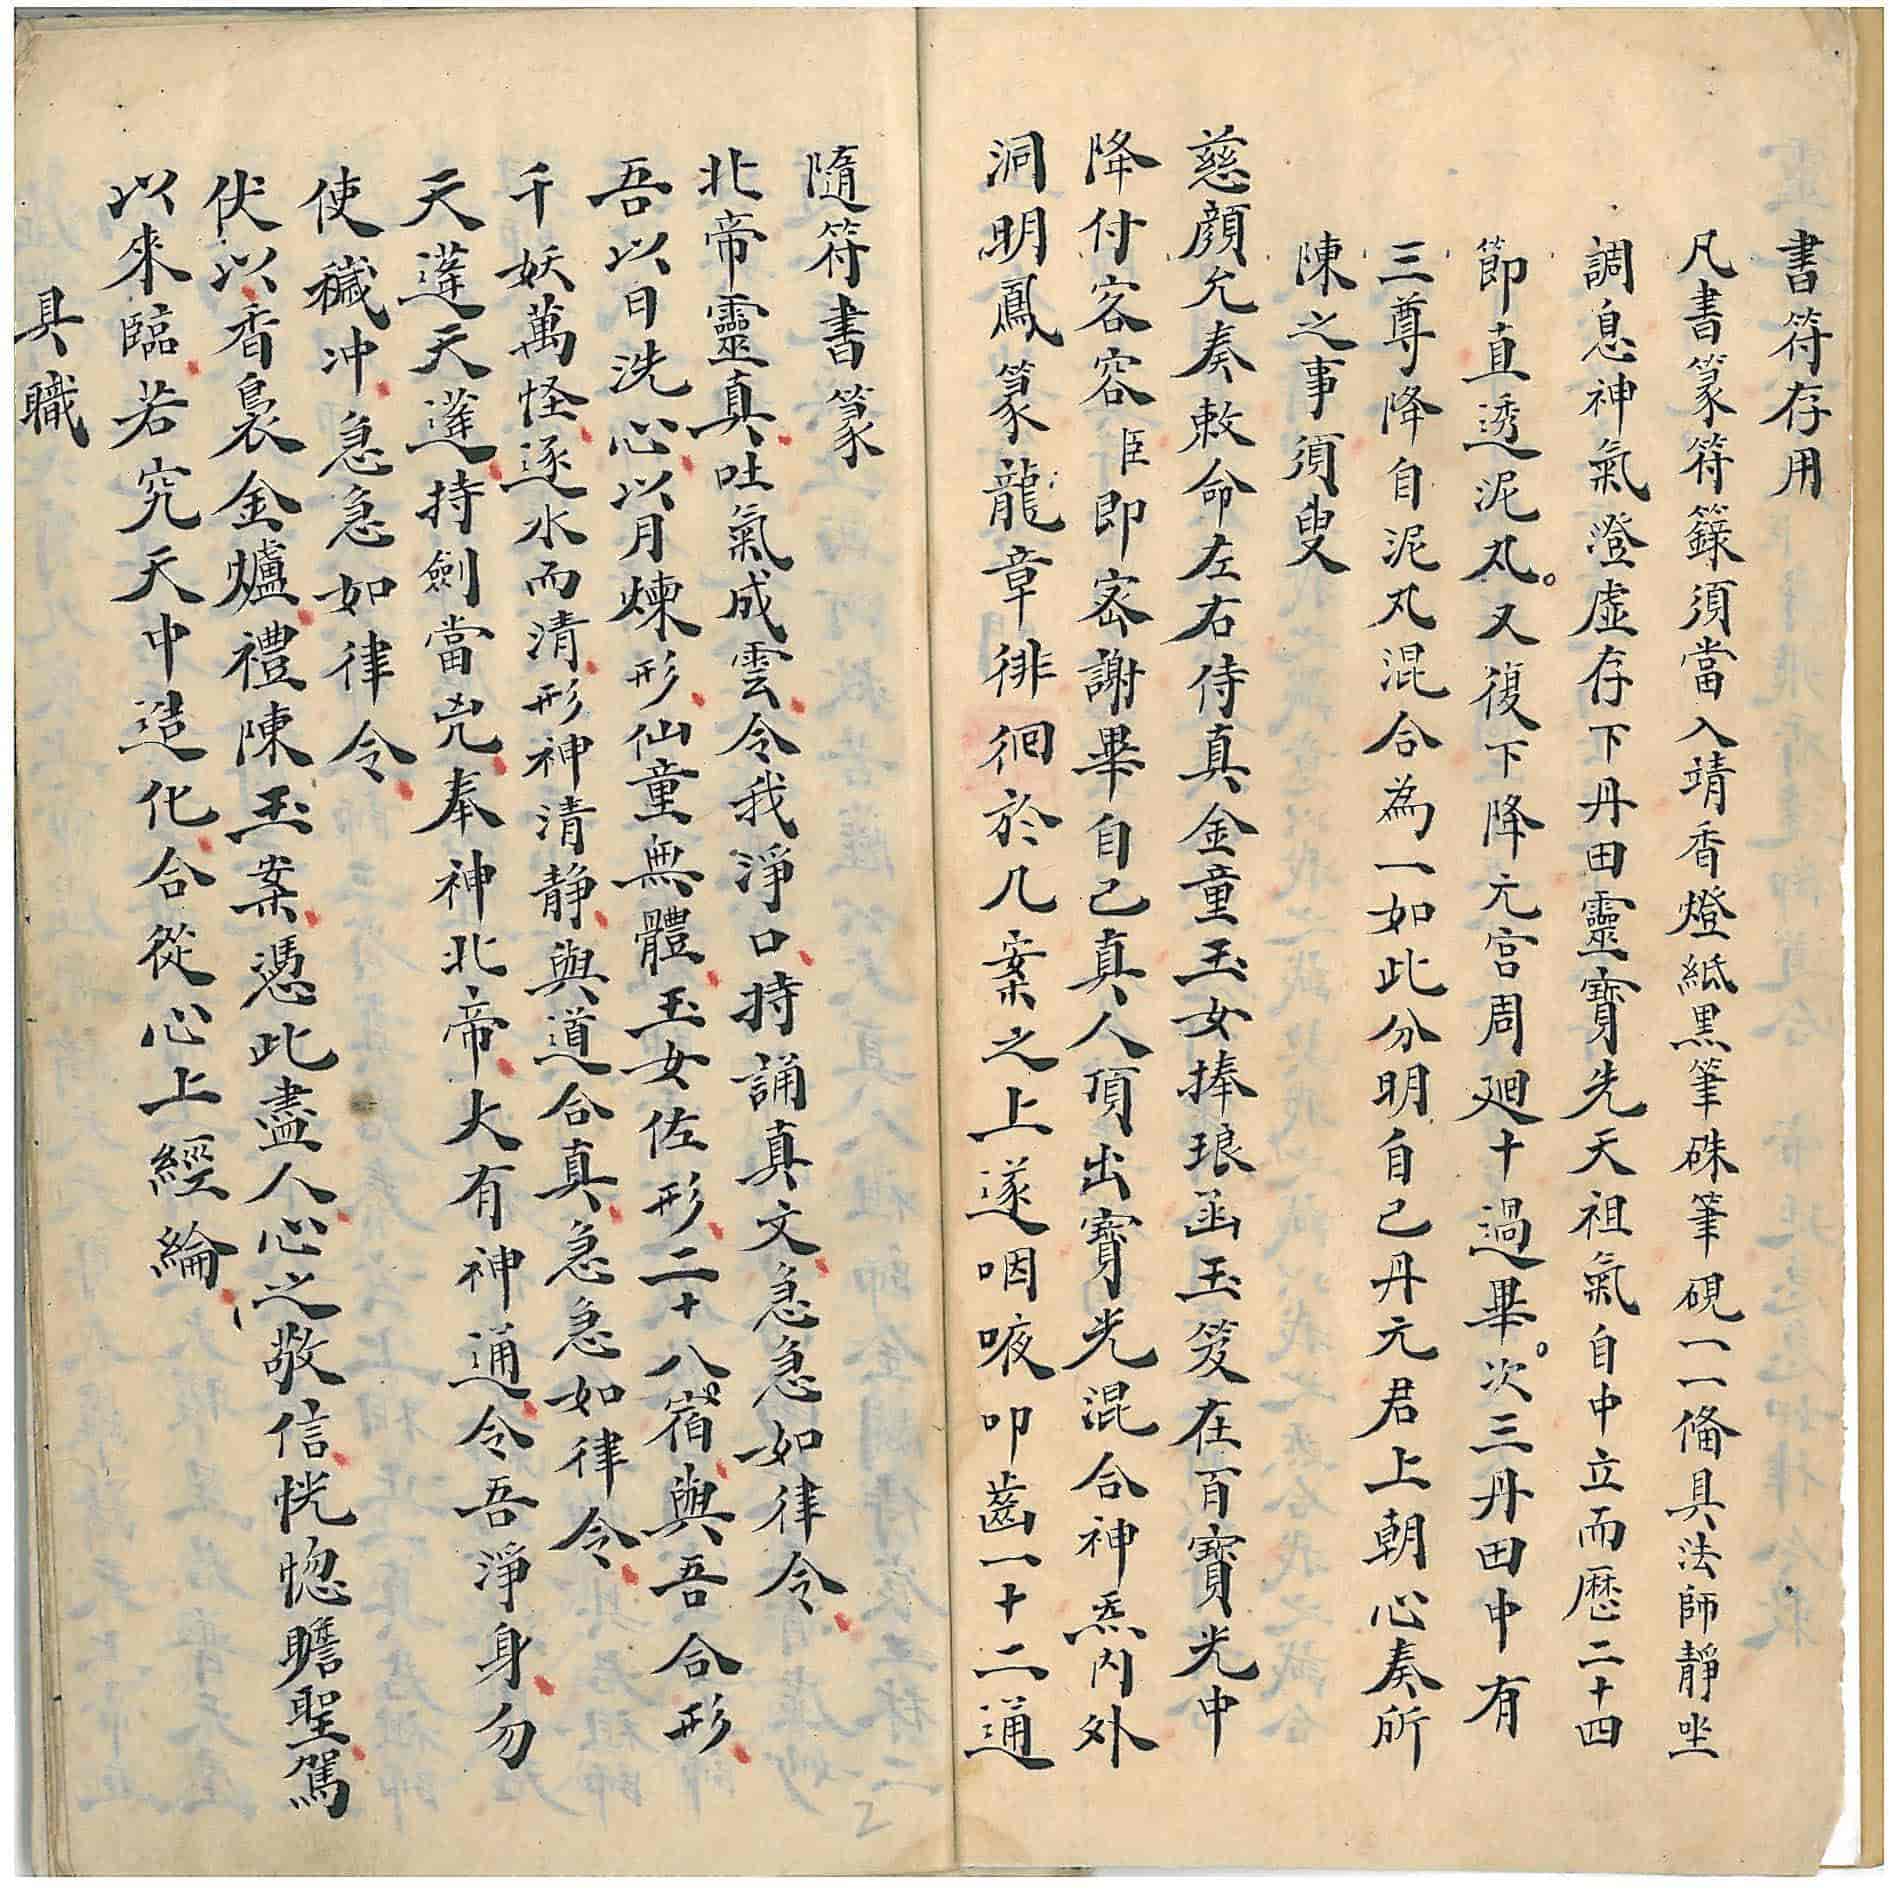 書符存用
凡書篆符籙須當入靖香燈紙黑筆硃筆硯一一俻具法師靜坐
調息神氣澄虛存下丹田靈寶先天祖氣自中立而歷二十四
節直透泥丸。又復下降元宮周廻十過畢。次三丹田中有
三尊降自泥丸混合為一如此分明自己丹元君上朝心奏所
陳之事須臾
慈顏允奏敕命左右侍真金童玉女捧琅函玉笈在百寶光中
降付容容臣即密謝畢自己真人頂出寶光混合神炁內外
洞明鳳篆龍章徘徊於几案之上遂咽唊叩齒一十二通
隨符書篆
北帝靈真吐氣成雲令我淨口持誦真文急急如律令
吾以日洗心以月煉形仙童無體玉女佐形二十八宿與吾合形
千妖萬怪逐水而清形神清靜與道合真急急如律令
天蓬天蓬持劍當兇奉神北帝大有神通令吾淨身勿
使穢冲急急如律令
伏以香裊金爐禮陳玉案憑此盡人心之敬信恍惚瞻聖駕
以來臨若究天中造化合從心上經綸
具職
2